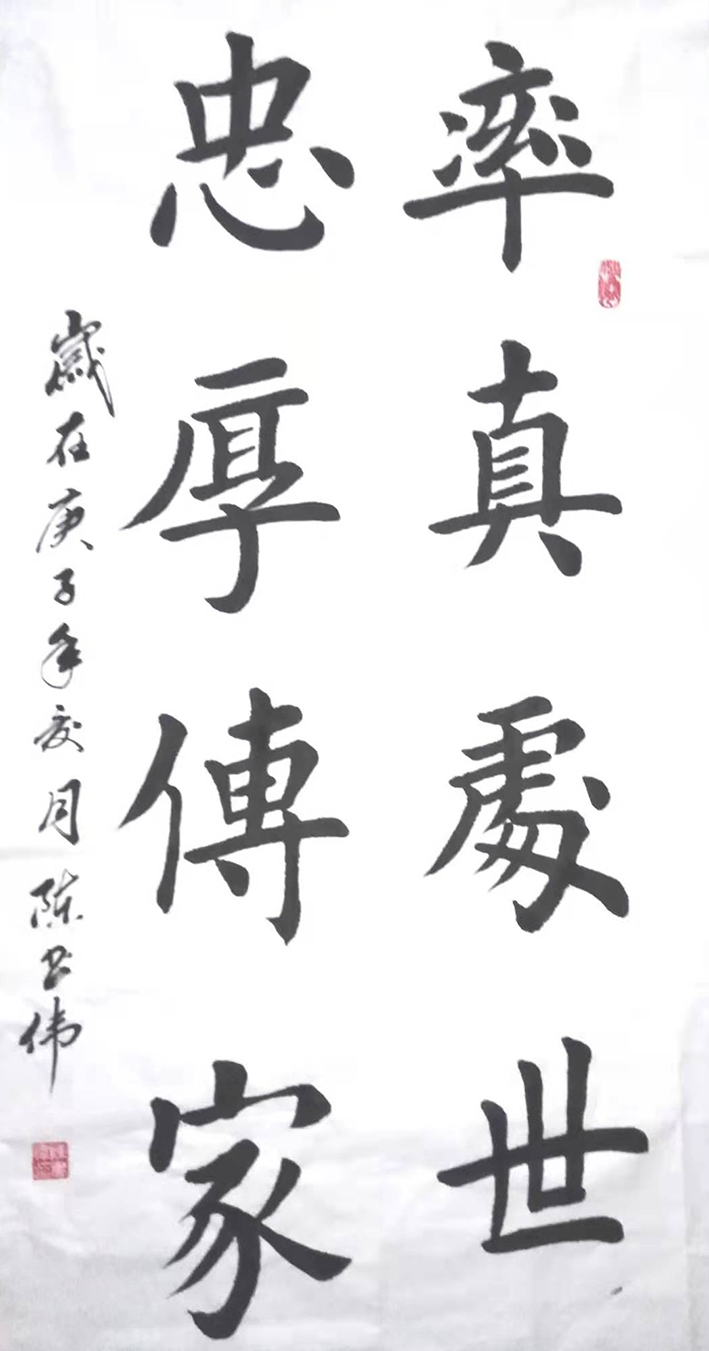 率真處世
忠厚傳家
歲在庚子年夏月陈 伟